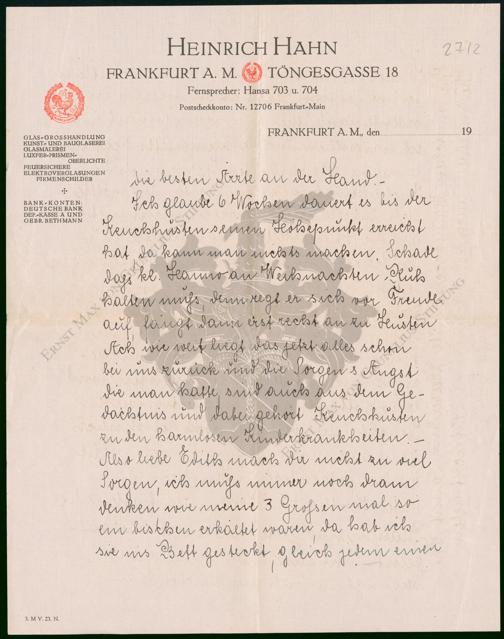 2712
HEINRICH HAHN
FRANKFURT A. M. TÖNGESGASSE 18
Fernsprecher: Hansa 703 u. 704
Postscheckkonto: Nr. 12706 Frankfurt-Main
FRANKFURT A. M., den 19
GLAS-GROSSHANDLUNG
KUNST- UND BAUGLASEREI
GLASMALEREI
LUXFER-PRISMEN-
OBERLICHTE
FEUERSICHERE
ELEKTROVERGLASUNGEN
FIRMENSCHILDER
BANK-KONTEN:
DEUTSCHE BANK
DEP.-KASSE A UND
GEBR. BETHMANN
die besten Ärzte an der Hand.-
Ich glaube 6 Wochen dauert es bis der
Keuchhusten seinen Höhepunkt erreicht
hat da kann man nichts machen. Schade
dass kl. Hanno an Weihnachten Ruh
halten muss denn regt er sich vor Freude
auf, fängt dann erst recht an zu Husten
Ach wie weit liegt das jetzt alles schon
bei uns zurück und die Sorgen & Angst
die man hatte sind auch aus dem Ge-
dächtnis und dabei gehört Keuchhusten
zu den harmlosen Kinderkrankheiten. -
Also liebe Edith mach dir nicht zu viel
Sorgen, ich muss immer noch dran
denken wie meine 3 Grossen mal so
ein bischen erkältet waren, da hab ich
sie ins Bett gesteckt, gleich jedem einen
3. M V. 23. N.